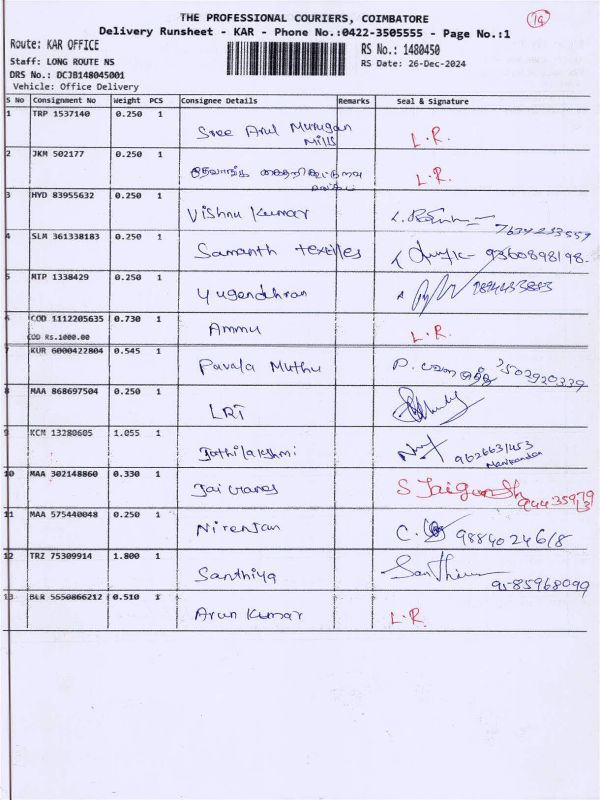 19
THE PROFESSIONAL COURIERS, COIMBATORE
Delivery Runsheet - KAR - Phone No.:0422-3505555 - Page No.:1
Route: KAR OFFICE
RS No.: 1480450
Staff: LONG ROUTE NS
RS Date: 26-Dec-2024
DRS No.: DCJB148045001
Vehicle: Office Delivery
S No Consignment No Weight PCS Consignee Details Remarks Seal & Signature
1 TRP 1537140 0.250 1 Sree Arul Murugan Mills L.R.
2 JKM 502177 0.250 1 L.R.
3 HYD 83955632 0.250 1 Vishnu Kumar
4 SLM 361338183 0.250 1 Samanth textiles 9360898198
5 MTP 1338429 0.250 1 Yugendhran
6 COD 1112205635 0.730 1 Ammu L.R.
COD Rs.1000.00
7 KUR 6000422804 0.545 1 Pavala Muthu 7502920339
8 MAA 868697504 0.250 1 LRT
9 KCM 13280605 1.055 1 Jothilakshmi 9626631453
Manikandan
10 MAA 302148860 0.330 1 Jai Ganes S Jaiganesh
9443597913
11 MAA 575440048 0.250 1 Nirenjan 9884024618
12 TRZ 75309914 1.800 1 Santhiya Santhiya
9585968099
13 BLR 5550866212 0.510 1 Arun Kumar L.R.